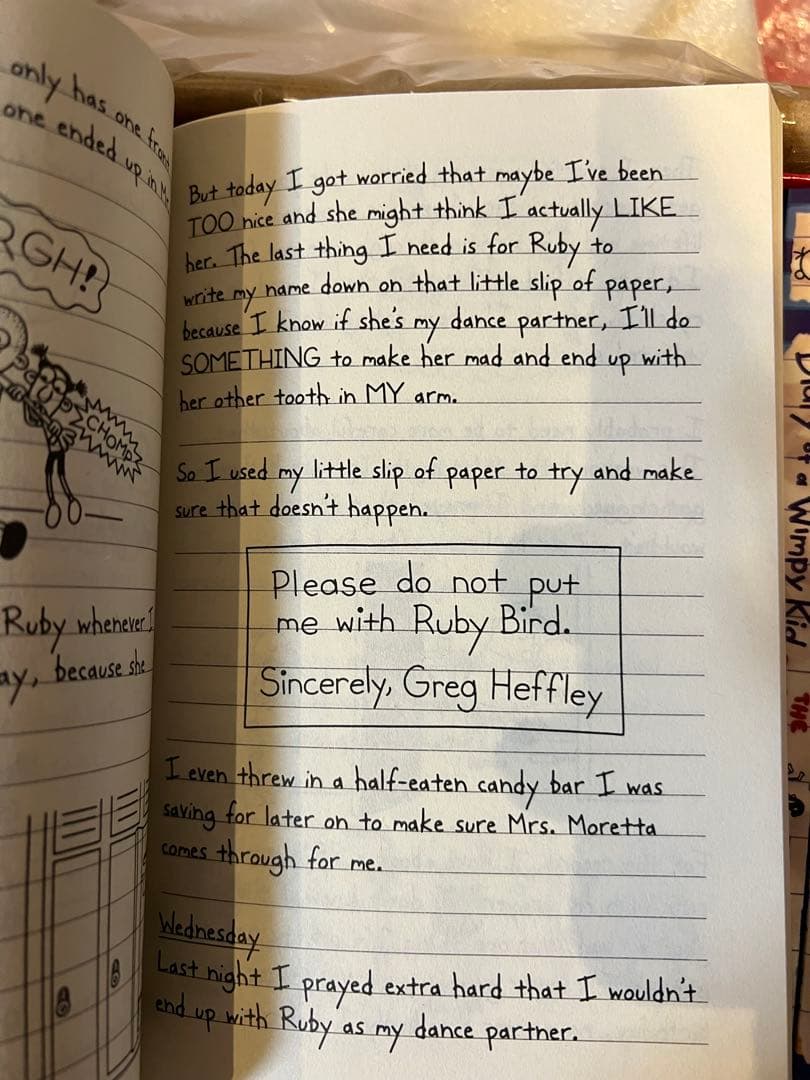 only has one
one ended up in
RGH!
CHOMP
Ruby whenever I
ay, because she
But today I got worried that maybe I've been
TOO nice and she might think I actually LIKE
her. The last thing I need is for Ruby to
write my name down on that little slip of paper,
because I know if she's my dance partner, I'll do
SOMETHING to make her mad and end up with
her other tooth in MY arm.
So I used my little slip of paper to try and make
sure that doesn't happen.
Please do not put
me with Ruby Bird.
Sincerely, Greg Heffley
I even threw in a half-eaten candy bar I was
saving for later on to make sure Mrs. Moretta
comes through for me.
Wednesday
Last night I prayed extra hard that I wouldn't
end up with Ruby as my dance partner.
Diary of a Wimpy Kid
THE